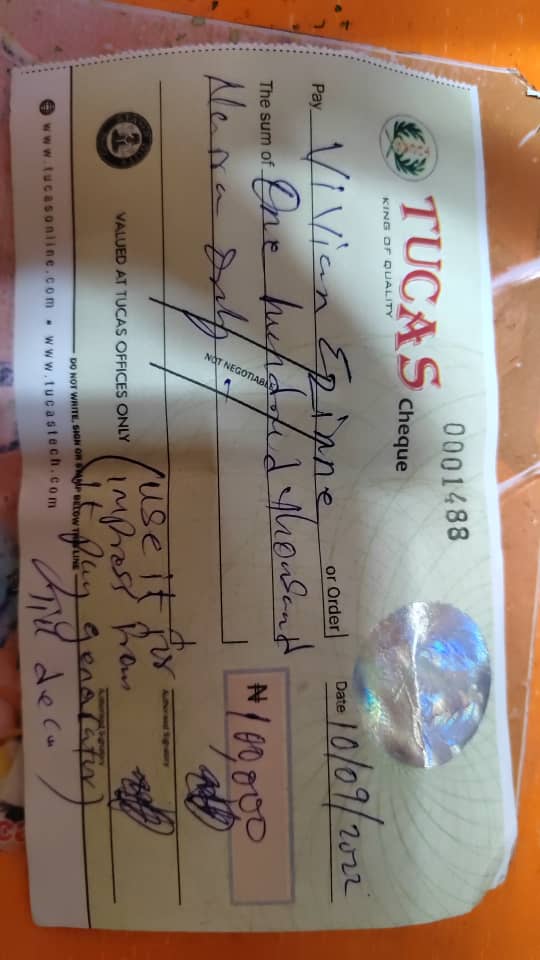 0001488
TUCAS cheque
KING OF QUALITY
Date 10/09/2022
Pay Vivian Ezinne or Order
The sum of One hundred thousand
Naira Only
₦100,000
NOT NEGOTIABLE
(use it for
Authorised Signatory
VALUED AT TUCAS OFFICES ONLY
it pay generator
Authorised Signatory
DO NOT WRITE, SIGN OR STAMP BELOW THIS LINE
till dec)
www.tucasonline.com • www.tucastech.com